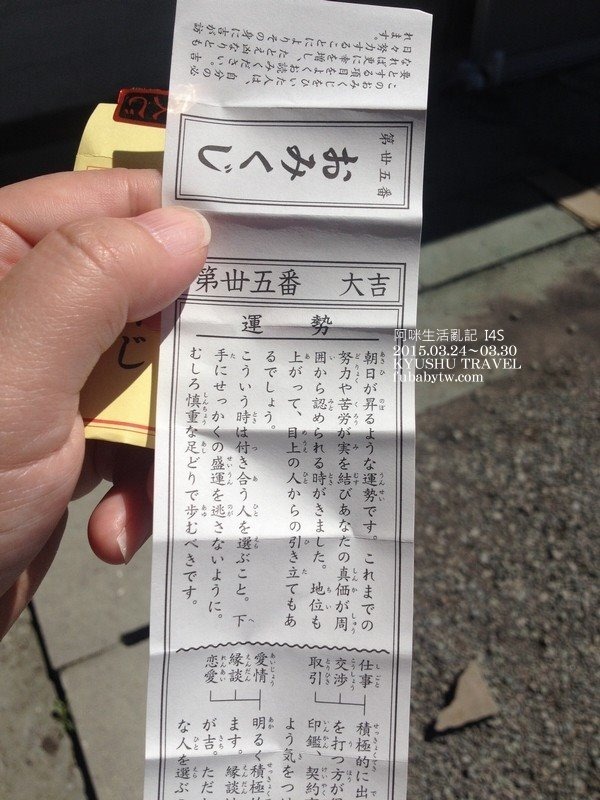 このおみくじをひいた人は、自分の必
要とする項目をよくお読みください。吉
なれば更に幸を増し、たとえ凶なりとも
日々努力することによりその身に吉が訪
れます。
第丗五番
おみくじ
第丗五番 大吉
運勢
朝日が昇るような運勢です。これまでの
努力や苦労が実を結びあなたの真価が周
囲から認められる時がきました。地位も
上がって、目上の人からの引き立てもあ
るでしょう。
こういう時は付き合う人を選ぶこと。下
手にせっかくの盛運を逃さないように。
むしろ慎重な足どりで歩むべきです。
仕事
交渉
取引
積極的に出
を打つ方が
印鑑、契約
よう気をつ
愛情
縁談
恋愛
明るく積極
ます。縁談
が吉。ただ
な人を選ぶ
阿咪生活亂記 I4S
2015.03.24~03.30
KYUSHU TRAVEL
fubabytw.com